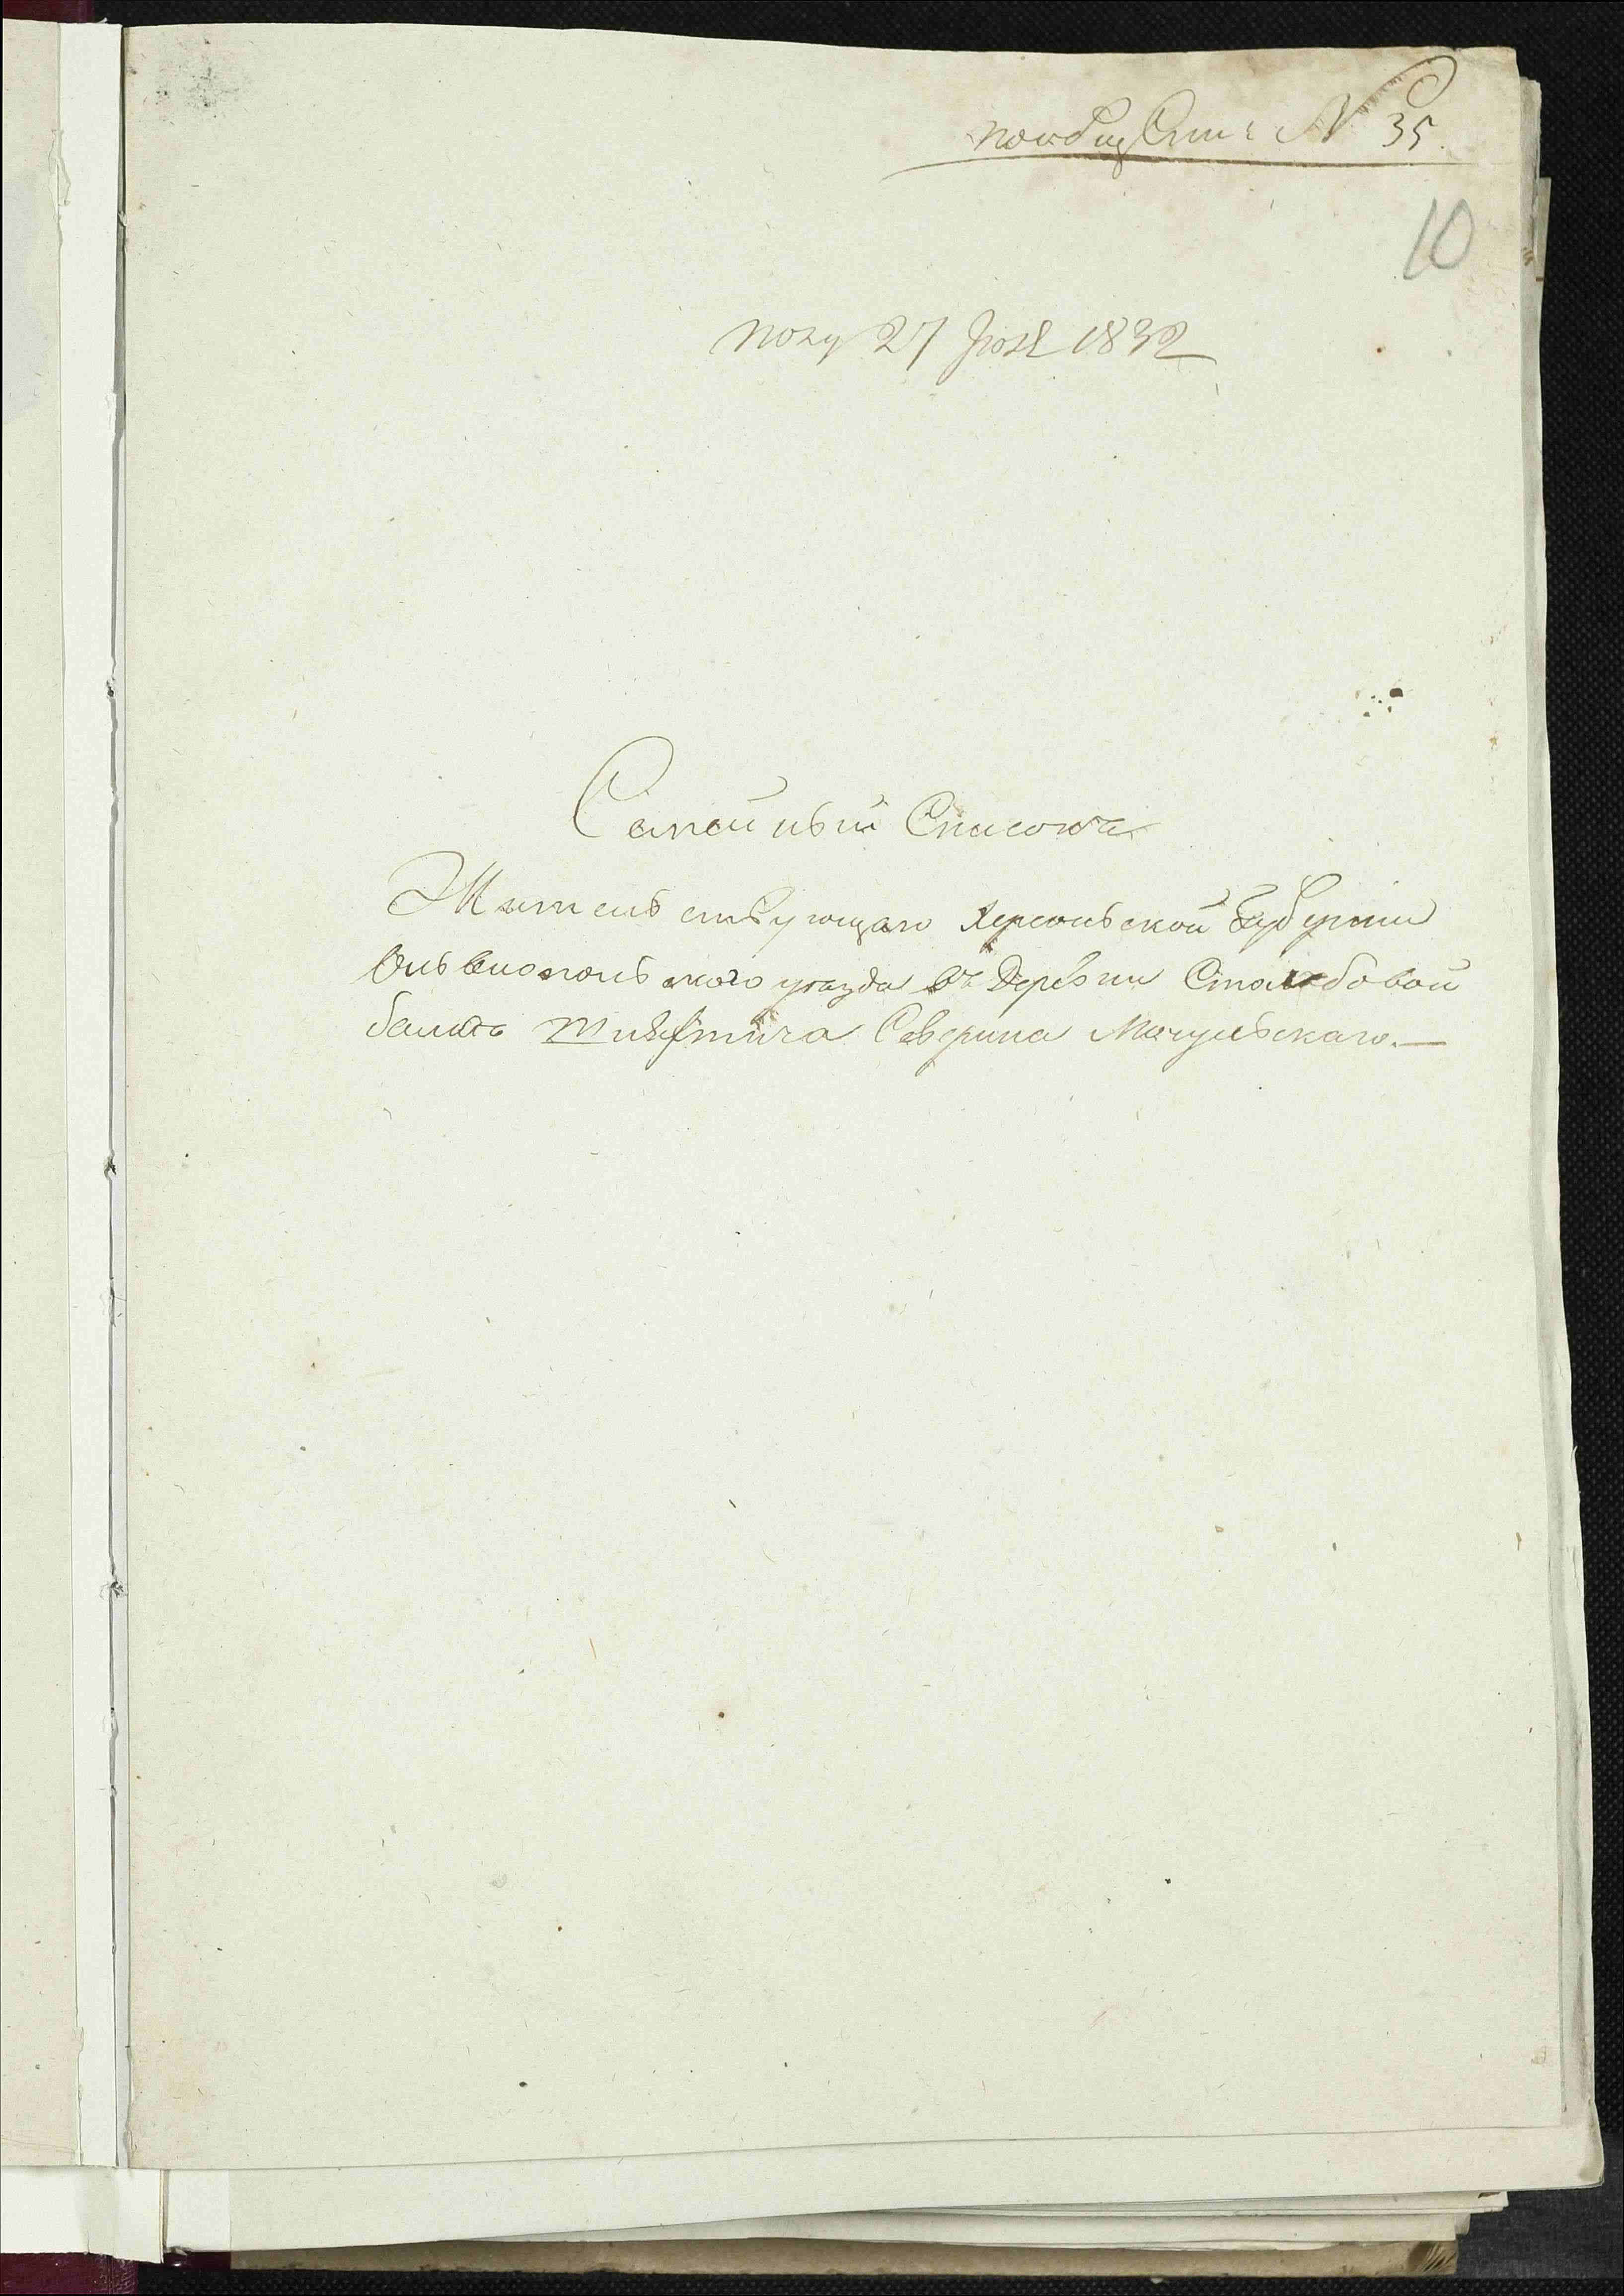 № 35.
10
полу 27 Июля 1832
Семейный Списокъ
Жительствующаго Херсоньской Губернии
Ольвиопольского уезда въ Деревни Столбовой
балкѣ шляхтича Северина Мачульскаго.—